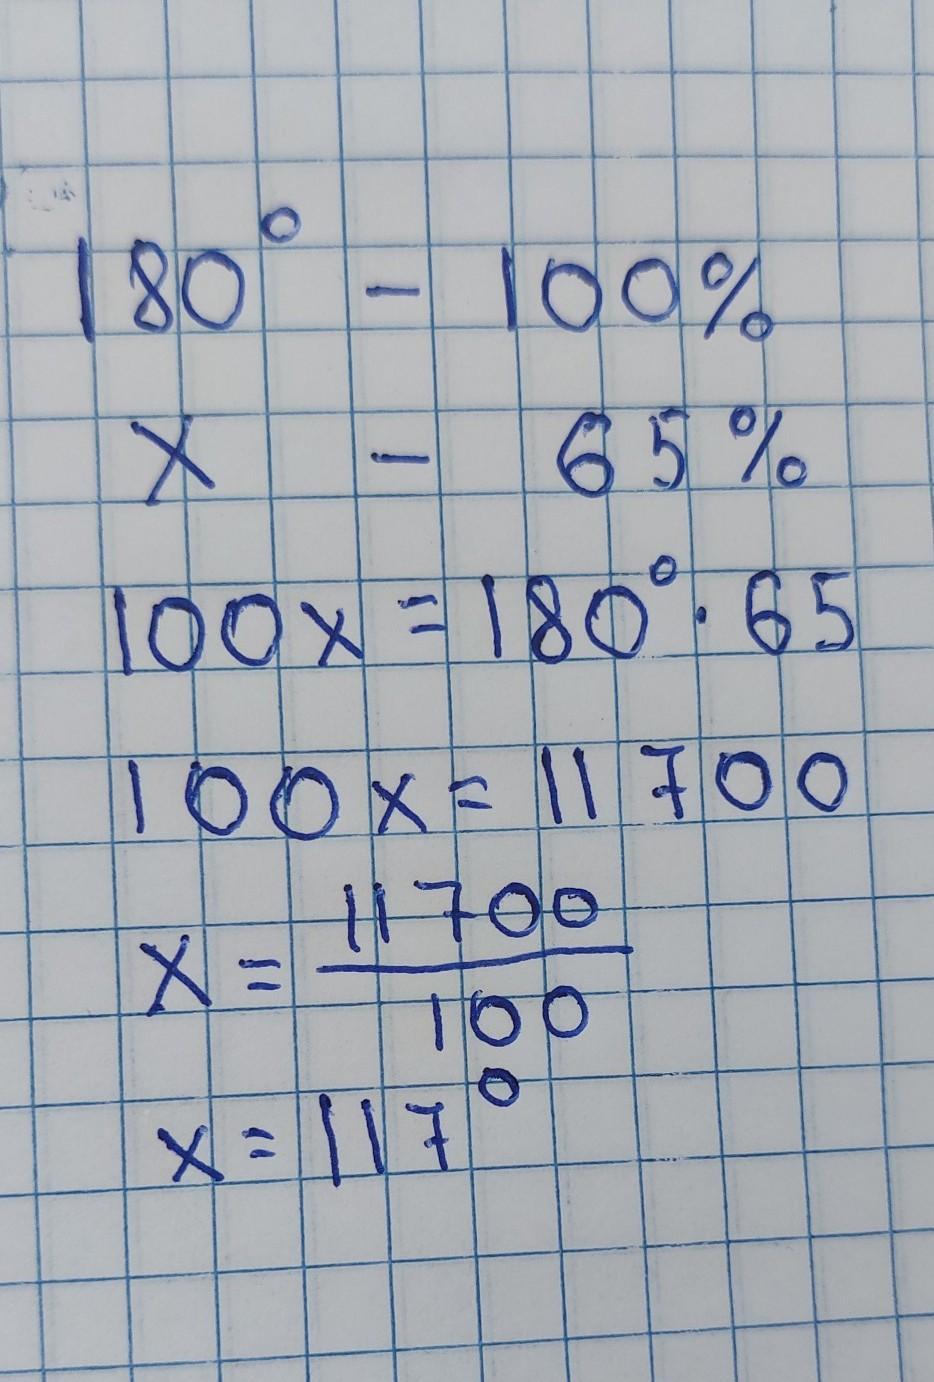 180° - 100%
x - 65%
100x = 180° · 65
100x = 11700
x = 11700/100
x = 117°